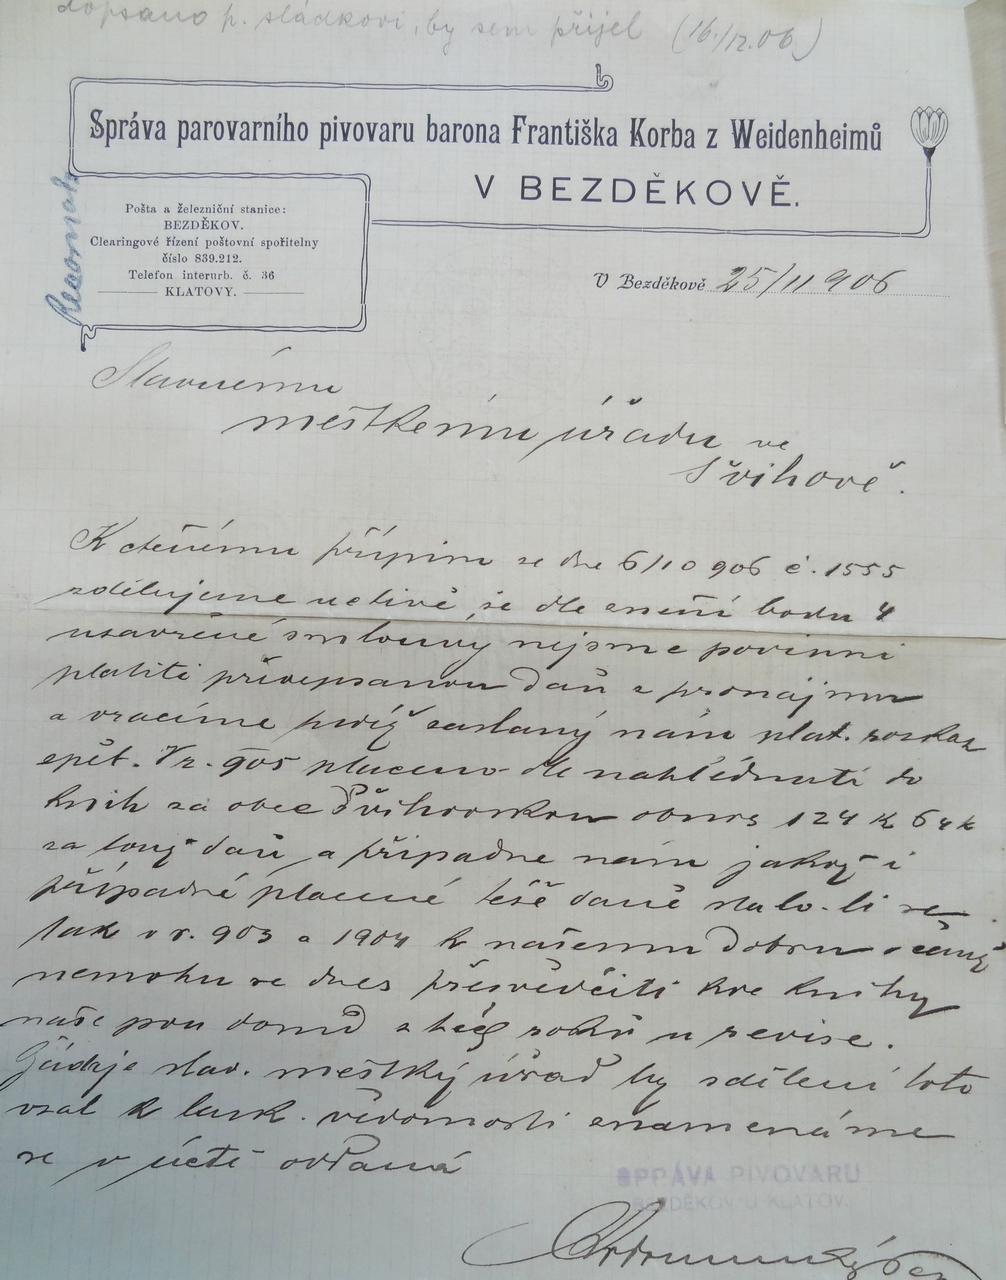 dopsáno p. sládkovi, by sem přijel (16./12.06)
Správa parovarního pivovaru barona Františka Korba z Weidenheimů
V BEZDĚKOVĚ.
Pošta a železniční stanice:
BEZDĚKOV.
Clearingové řízení poštovní spořitelny
číslo 839.212.
Telefon interurb. č. 36
KLATOVY.
V Bezděkově 25/11 906
Slavnému
městkému úřadu ve
Švihově.
K ctěnému přípisu ze dne 6/10 906 č. 1555
sdělujeme uctivě, že dle znění bodu 4
uzavřené smlouvy nejsme povinni
platiti předepsanou daň z pronájmu
a vracíme zaslaný nám plat. rozkaz
zpět. V r. 905 placeno dle nahlédnutí do
knih za obec Švihovskou obnos 124 K 64 h
za touž daň, a připadne nám jakož i
případné placené téže daně stalo-li se
tak v r. 903 a 1904 k našemu dobru o čemž
nemohu se dnes přesvědčiti kde knihy
naše jsou z těch roků u revise.
Žádaje slav. městký úřad by sdělení toto
vzal k lask. vědomosti znamenáme
se v úctě oddaná
SPRÁVA PIVOVARU
BEZDĚKOV U KLATOV.